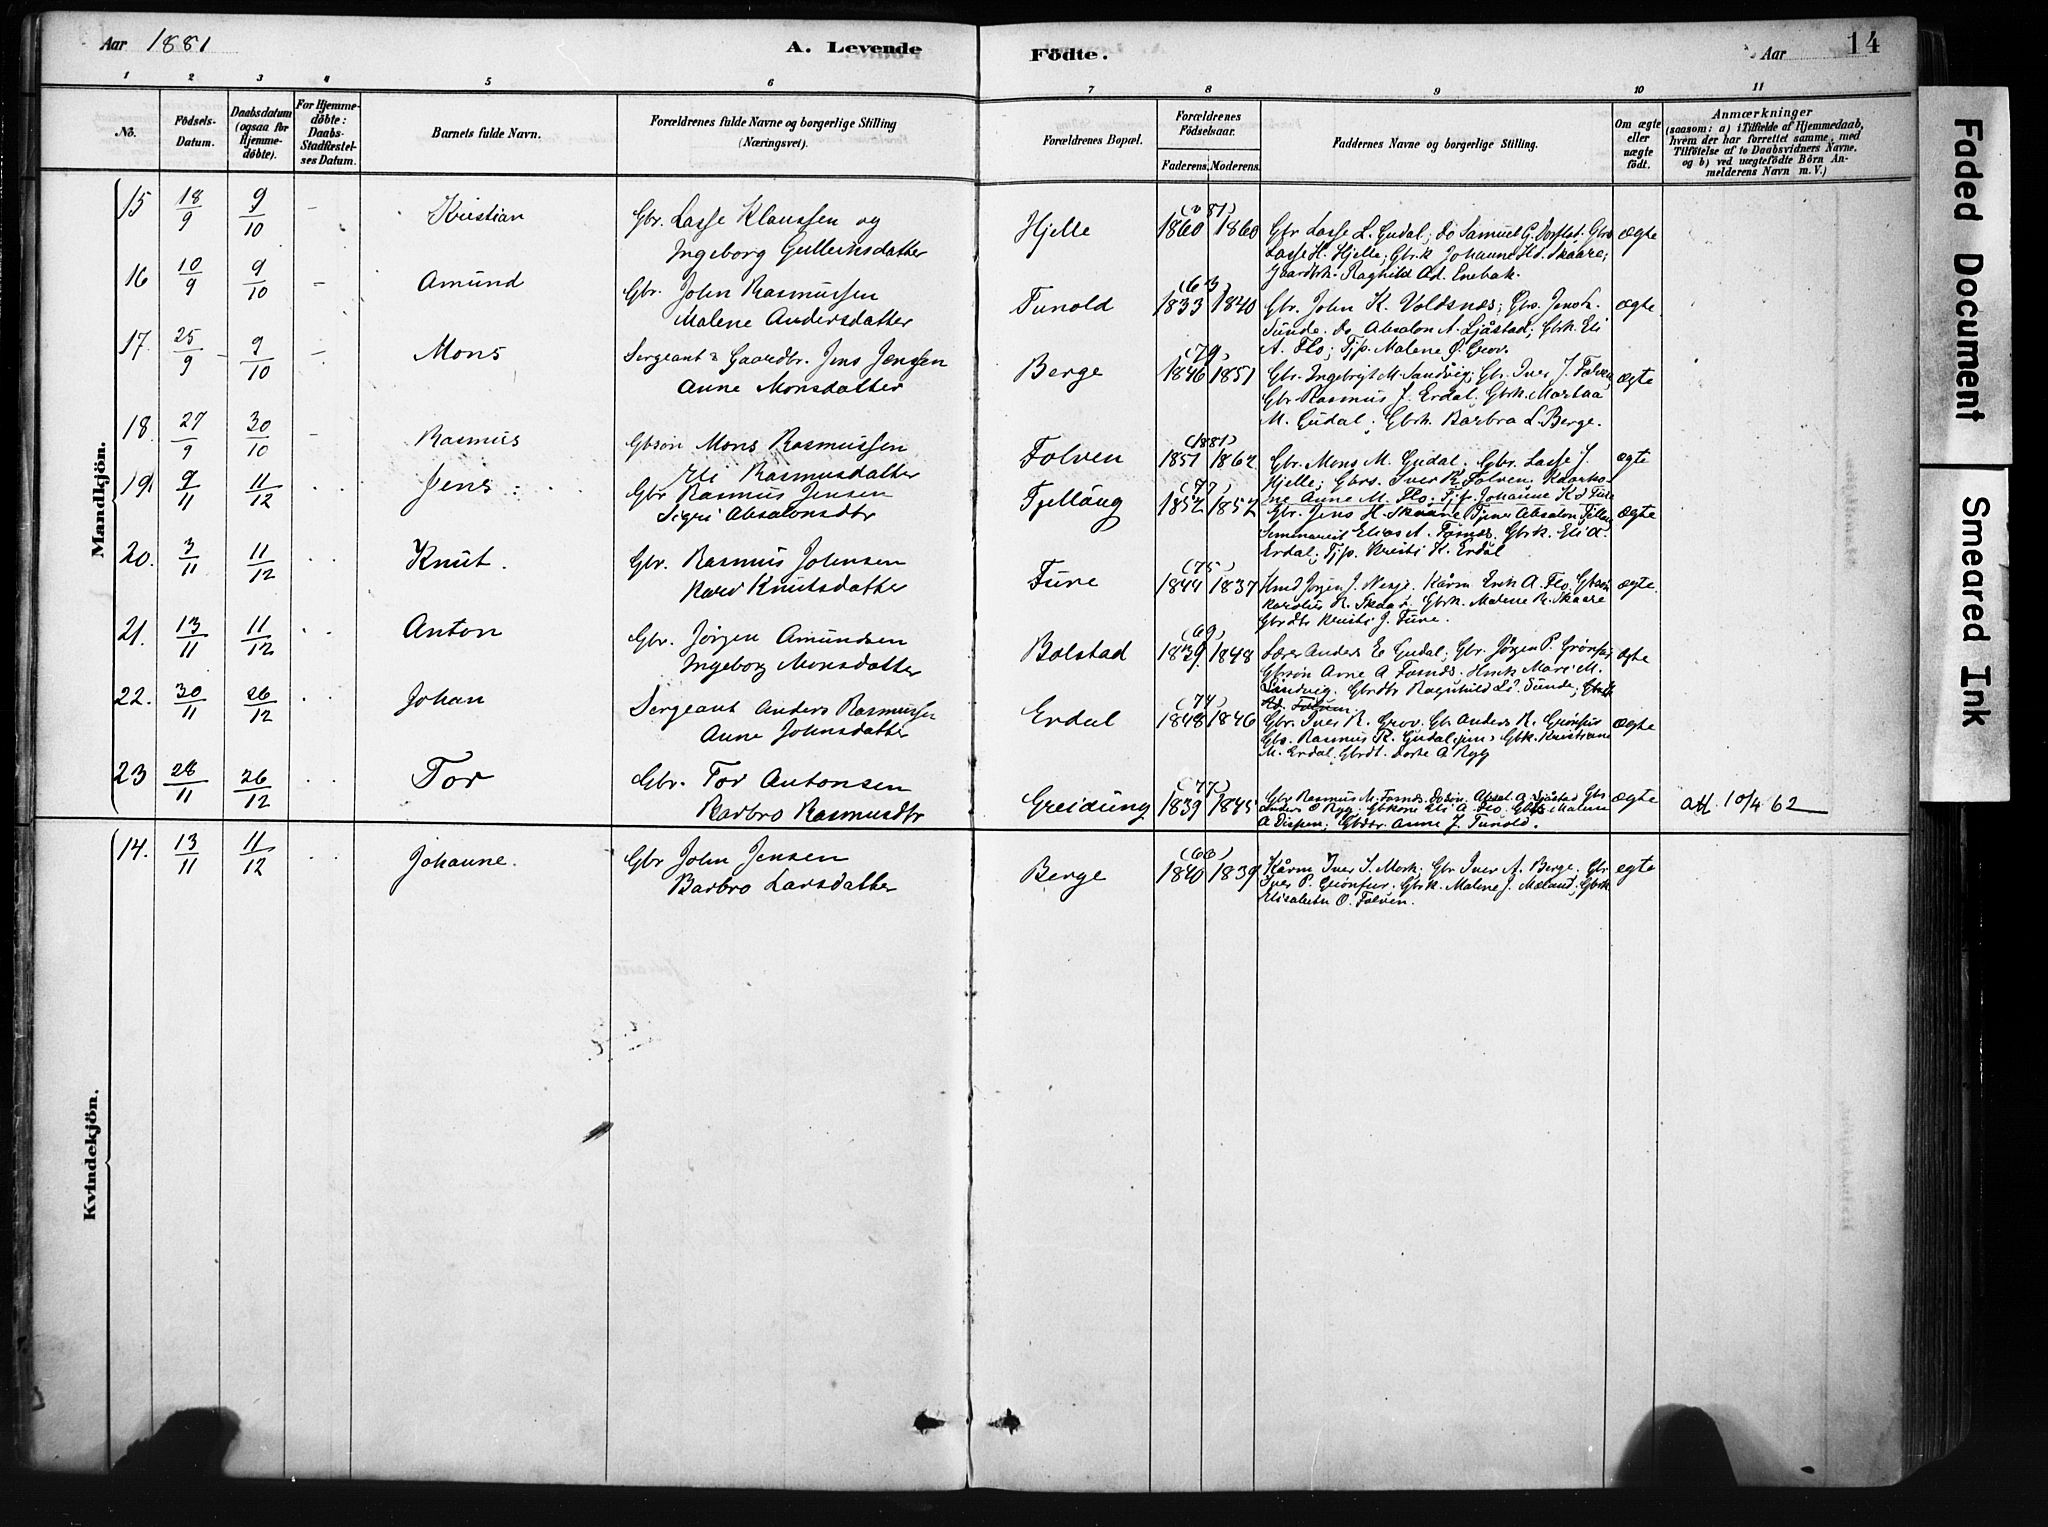 Aar 1881
A. Levende
Födte.
Aar
14
1 2 3 4 5 6 7 8 9 10 11
No.
Födsels-Datum.
Daabsdatum (ogsaa for Hjemme-döbte).
For Hjemme-döbte: Daabs-Stadfæstel-ses Datum.
Barnets fulde Navn.
Forældrenes fulde Navne og borgerlige Stilling (Næringsvei).
Forældrenes Bopæl.
Forældrenes Födselsaar.
Faderens. Moderens.
Faddernes Navne og borgerlige Stilling.
Om ægte eller uægte födt.
Anmærkninger
(saasom: a) i Tilfælde af Hjemmedaab,
hvem der har forrettet samme, med
Tilföielse af to Daabsvidners Navne.
og b) ved uægtefödte Börn An-
melderens Navn m. V.)
Mandkjön.
15 18/9 9/10 – Kristian Gbr. Lasse Klaussen og
Ingeborg Gulleiksdatter
Hjelle (81) 1860 1860 Gbr Lasse L. Gudal; do Samuel G.
Lasse H. Hjelle; Gbrk Johanne Hd. Skaare;
Gaardbrk. Raghild Ad. Enebak.
ægte
16 10/9 9/10 – Amund Gbr. John Rasmussen
Malene Andersdatter
Tunold (63) 1833 1840 Gbr. John K. Voldsnæs; Gbs. Jens L.
Sunde. do Absalon A. Sjåstad; Gbk. Eli
A. Flo; Tjp. Malene O. Grov.
ægte
17. 25/9 9/10 – Mons Sergeant & Gaardbr. Jens Jenssen
Anne Monsdatter
Berge (79) 1846 1851 Gbr. Ingebrigt M. Sandvig; Gbr. Iver J. Folven
Gbr Rasmus J. Erdal. Gbrk. Martaa
M. Gudal; Gbrk. Barbra L. Berge.
ægte
18. 27/9 30/10 – Rasmus Gbsøn Mons Rasmussen
Eli Rasmusdatter
Folven (1881) 1851 1862 Gbr. Mons M. Gudal; Gbr. Lasse J.
Hjelle; Gbrs. Iver R. Folven.
Anne M. Flo. Tjp. Johanne K d Fure
ægte
19. 9/11 11/12 Jens Gbr Rasmus Jensen
Sigri Absalonsdtr
Fjellaug (77) 1852 1852 Gbr. Jens H. Skaare Tjener Absalon
Seminarist Elias A. Fosnæs. Gbrk. Eli A.
Erdal; Tjp. Kristi K. Erdal
ægte
20. 3/11 11/12 Knut. Gbr. Rasmus Johnsen
Kari Knutsdatter
Fure (75) 1844 1837 Jørgen J. Nesje. Kårm Erik A. Flo, Gbsøn
Karolus R. Gbrk. Malene R. Skaare
Gbrdtr Kristi J. Fure.
ægte.
21. 13/11 11/12 Anton Gbr. Jörgen Amundsen
Ingeborg Monsdatter
Bolstad (69) 1839 1848 Lærer Anders E. Gudal; Gbr. Jörgen P. Grønfur
Gbsøn Arne A Fosnæs. Hmk Mari M.
Sandvig. Gbrdtr Ragnhild L. Sunde;
ægte
22. 30/11 26/12 Johan Sergeant Anders Rasmussen
Anne Johnsdatter
Erdal (74) 1848 1846 Gbr. Iver R. Grov. Gb. Anders R. Grønfur
Gbs. Rasmus R. Gudal jun; Gbk. Kristiane
M. Erdal, Gbrdt. Dorte A Rygg
ægte
23 28/11 26/12 Tor Gbr. Tor Antonsen
Barbro Rasmusdtr
Greidung (77) 1839 1845 Gbr Rasmus M. Fosnæs. Absal. A. Sjåstad Gbs
Anders O Rygg; Eli A. Flo. Malene
A Dispen; Gbdtr. Anne J. Tunold.
ægte att. 10/4 62
Kvindekjön.
14. 13/11 11/12 Johanne. Gbr John Jensen
Barbro Larsdatter
Berge (66) 1840 1839 Kårm Iver S. Mork; Gbr Iver A. Berge; Gbr
Iver P. Grønfur. Gbrk. Malene J. Mæland; Gbrk
Elisabeth O. Folven.
ægte
Faded Document
Smeared Ink